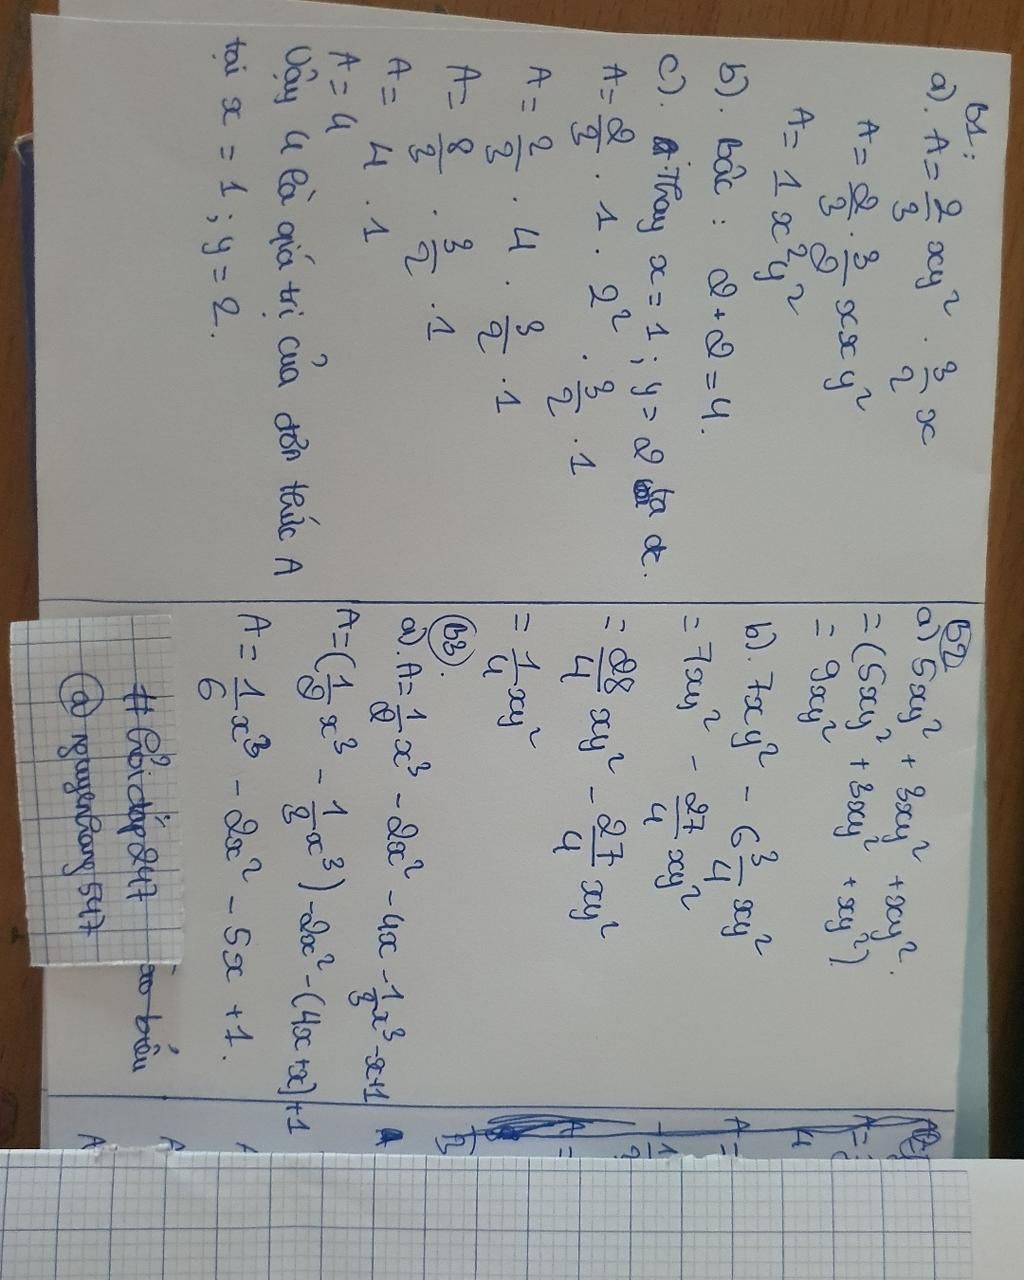 B1:
a). A = 2/3 xy² . 3/2 x
A = 2/3 . 3/2 x x y²
A = 1 x² y²
b). Bậc : 2 + 2 = 4.
c). Thay x = 1 ; y = 2 ta đc.
A = 2/3 . 1 . 2² . 3/2 . 1
A = 2/3 . 4 . 3/2 . 1
A = 8/3 . 3/2 . 1
A = 4 . 1
A = 4
Vậy 4 là giá trị của đơn thức A
tại x = 1 ; y = 2.
B2
a) 5xy² + 3xy² + xy².
= (5xy² + 3xy² + xy²)
= 9xy²
b). 7xy² - 6 3/4 xy²
= 7xy² - 27/4 xy²
= 28/4 xy² - 27/4 xy²
= 1/4 xy²
B3.
a). A = 1/2 x³ - 2x² - 4x - 1/3 x³ - x + 1
A = (1/2 x³ - 1/3 x³) - 2x² - (4x + x) + 1
A = 1/6 x³ - 2x² - 5x + 1.
biến
# hỏi đáp 247
@ nguyenhang547
A =
4
A =
A =
A
A